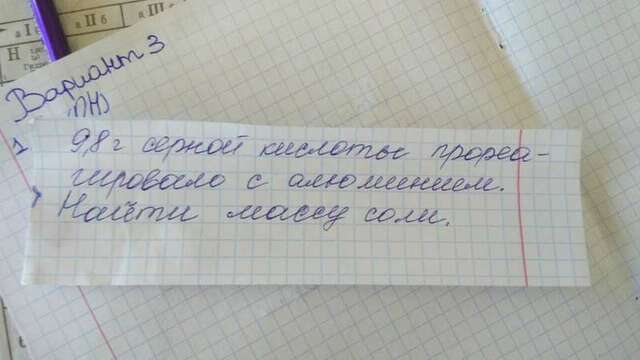 а I б
а II б
а III
H
Вариант 3
(ПН)
1
98 г серной кислоты прореа-
гировало с алюминием.
Найти массу соли.